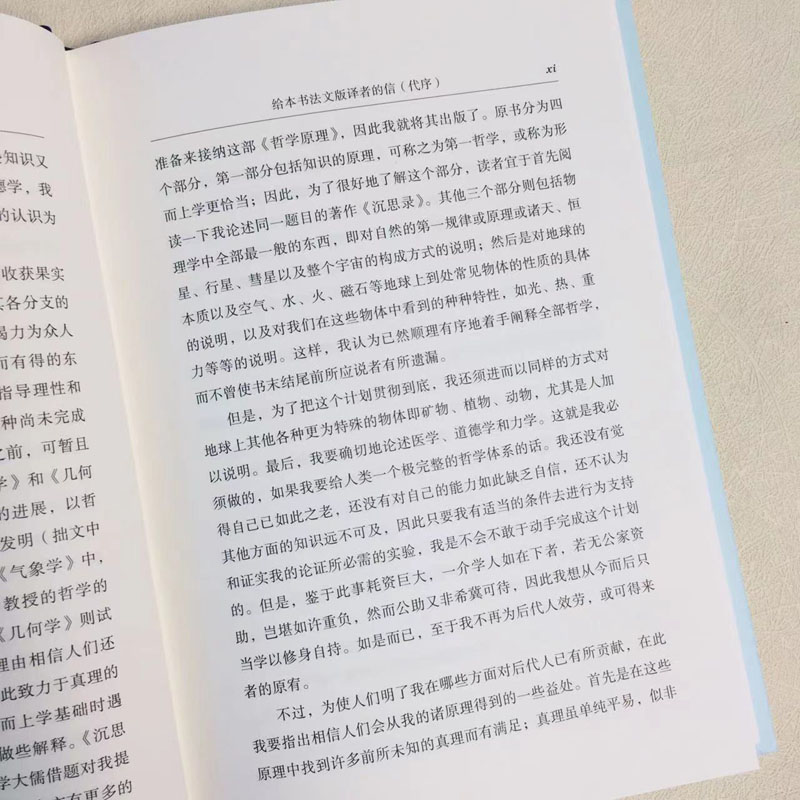 全知识又
德学，我
的认识为
收获果实
其各分支的
竭力为众人
而有得的东
指导理性和
种尚未完成
之前，可暂且
学》和《几何
的进展，以哲
发明（拙文中
《气象学》中，
教授的哲学的
《几何学》则试
理由相信人们还
此致力于真理的
而上学基础时遇
做些解释。《沉思
学大儒借题对我提
给本书法文版译者的信（代序）
xi
准备来接纳这部《哲学原理》，因此我就将其出版了。原书分为四
个部分，第一部分包括知识的原理，可称之为第一哲学，或称为形
而上学更恰当；因此，为了很好地了解这个部分，读者宜于首先阅
读一下我论述同一题目的著作《沉思录》。其他三个部分则包括物
理学中全部最一般的东西，即对自然的第一规律或原理或诸天、恒
星、行星、彗星以及整个宇宙的构成方式的说明；然后是对地球的
本质以及空气、水、火、磁石等地球上到处常见物体的性质的具体
的说明，以及对我们在这些物体中看到的种种特性，如光、热、重
力等等的说明。这样，我认为已然顺理有序地着手阐释全部哲学，
而不曾使书末结尾前所应说者有所遗漏。
但是，为了把这个计划贯彻到底，我还须进而以同样的方式对
地球上其他各种更为特殊的物体即矿物、植物、动物，尤其是人加
以说明。最后，我要确切地论述医学、道德学和力学。这就是我必
须做的，如果我要给人类一个极完整的哲学体系的话。我还没有觉
得自己已如此之老，还没有对自己的能力如此缺乏自信，还不认为
其他方面的知识远不可及，因此只要我有适当的条件去进行为支持
和证实我的论证所必需的实验，我是不会不敢于动手完成这个计划
的。但是，鉴于此事耗资巨大，一介学人如在下者，若无公家资
助，岂堪如许重负，然而公助又非希冀可待，因此我想从今而后只
当学以修身自持。如是而已，至于我不再为后代人效劳，或可得来
者的原宥。
不过，为使人们明了我在哪些方面对后代人已有所贡献，在此
我要指出相信人们会从我的诸原理得到的一些益处。首先是在这些
原理中找到许多前所未知的真理而有满足；真理虽单纯平易，似非